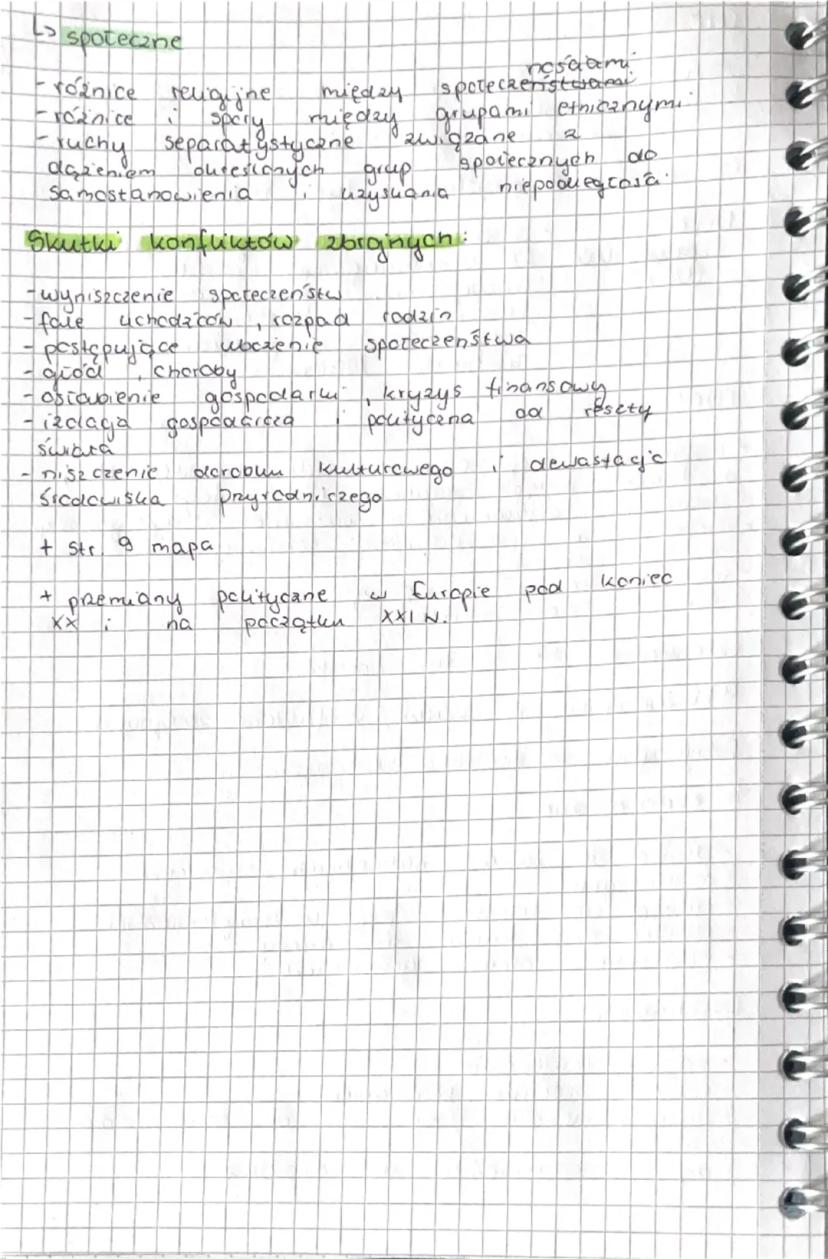 ↳ społeczne
nościami
- różnice religijne między społeczeństwami
- różnice i spory między grupami etnicznymi
- ruchy separatystyczne związane z
dążeniem określonych grup społecznych do
samostanowienia i uzyskania niepodległości.
Skutki konfliktów zbrojnych:
- wyniszczenie społeczeństw
- fale uchodźców, rozpad rodzin
- postępujące ubożenie społeczeństwa
- głód, choroby
- osłabienie gospodarki, kryzys finansowy
- izolacja gospodarcza i polityczna od reszty
świata
- niszczenie dorobku kulturowego i dewastacje
środowiska przyrodniczego
+ str. 9 mapa
+ przemiany polityczne w Europie pod koniec
XX i na początku XXI w.